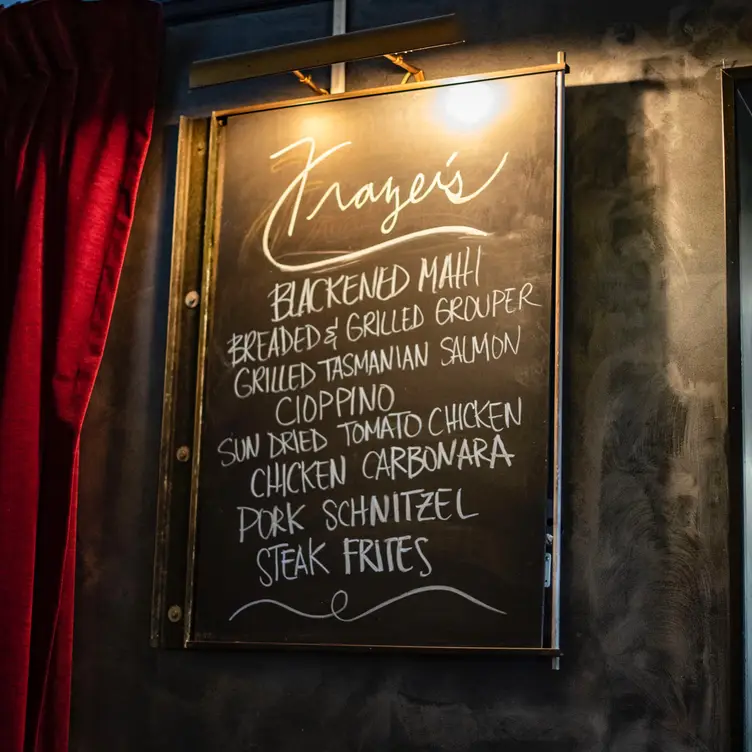 Frazer's
BLACKENED MAHI
BREADED & GRILLED GROUPER
GRILLED TASMANIAN SALMON
CIOPPINO
SUN DRIED TOMATO CHICKEN
CHICKEN CARBONARA
PORK SCHNITZEL
STEAK FRITES